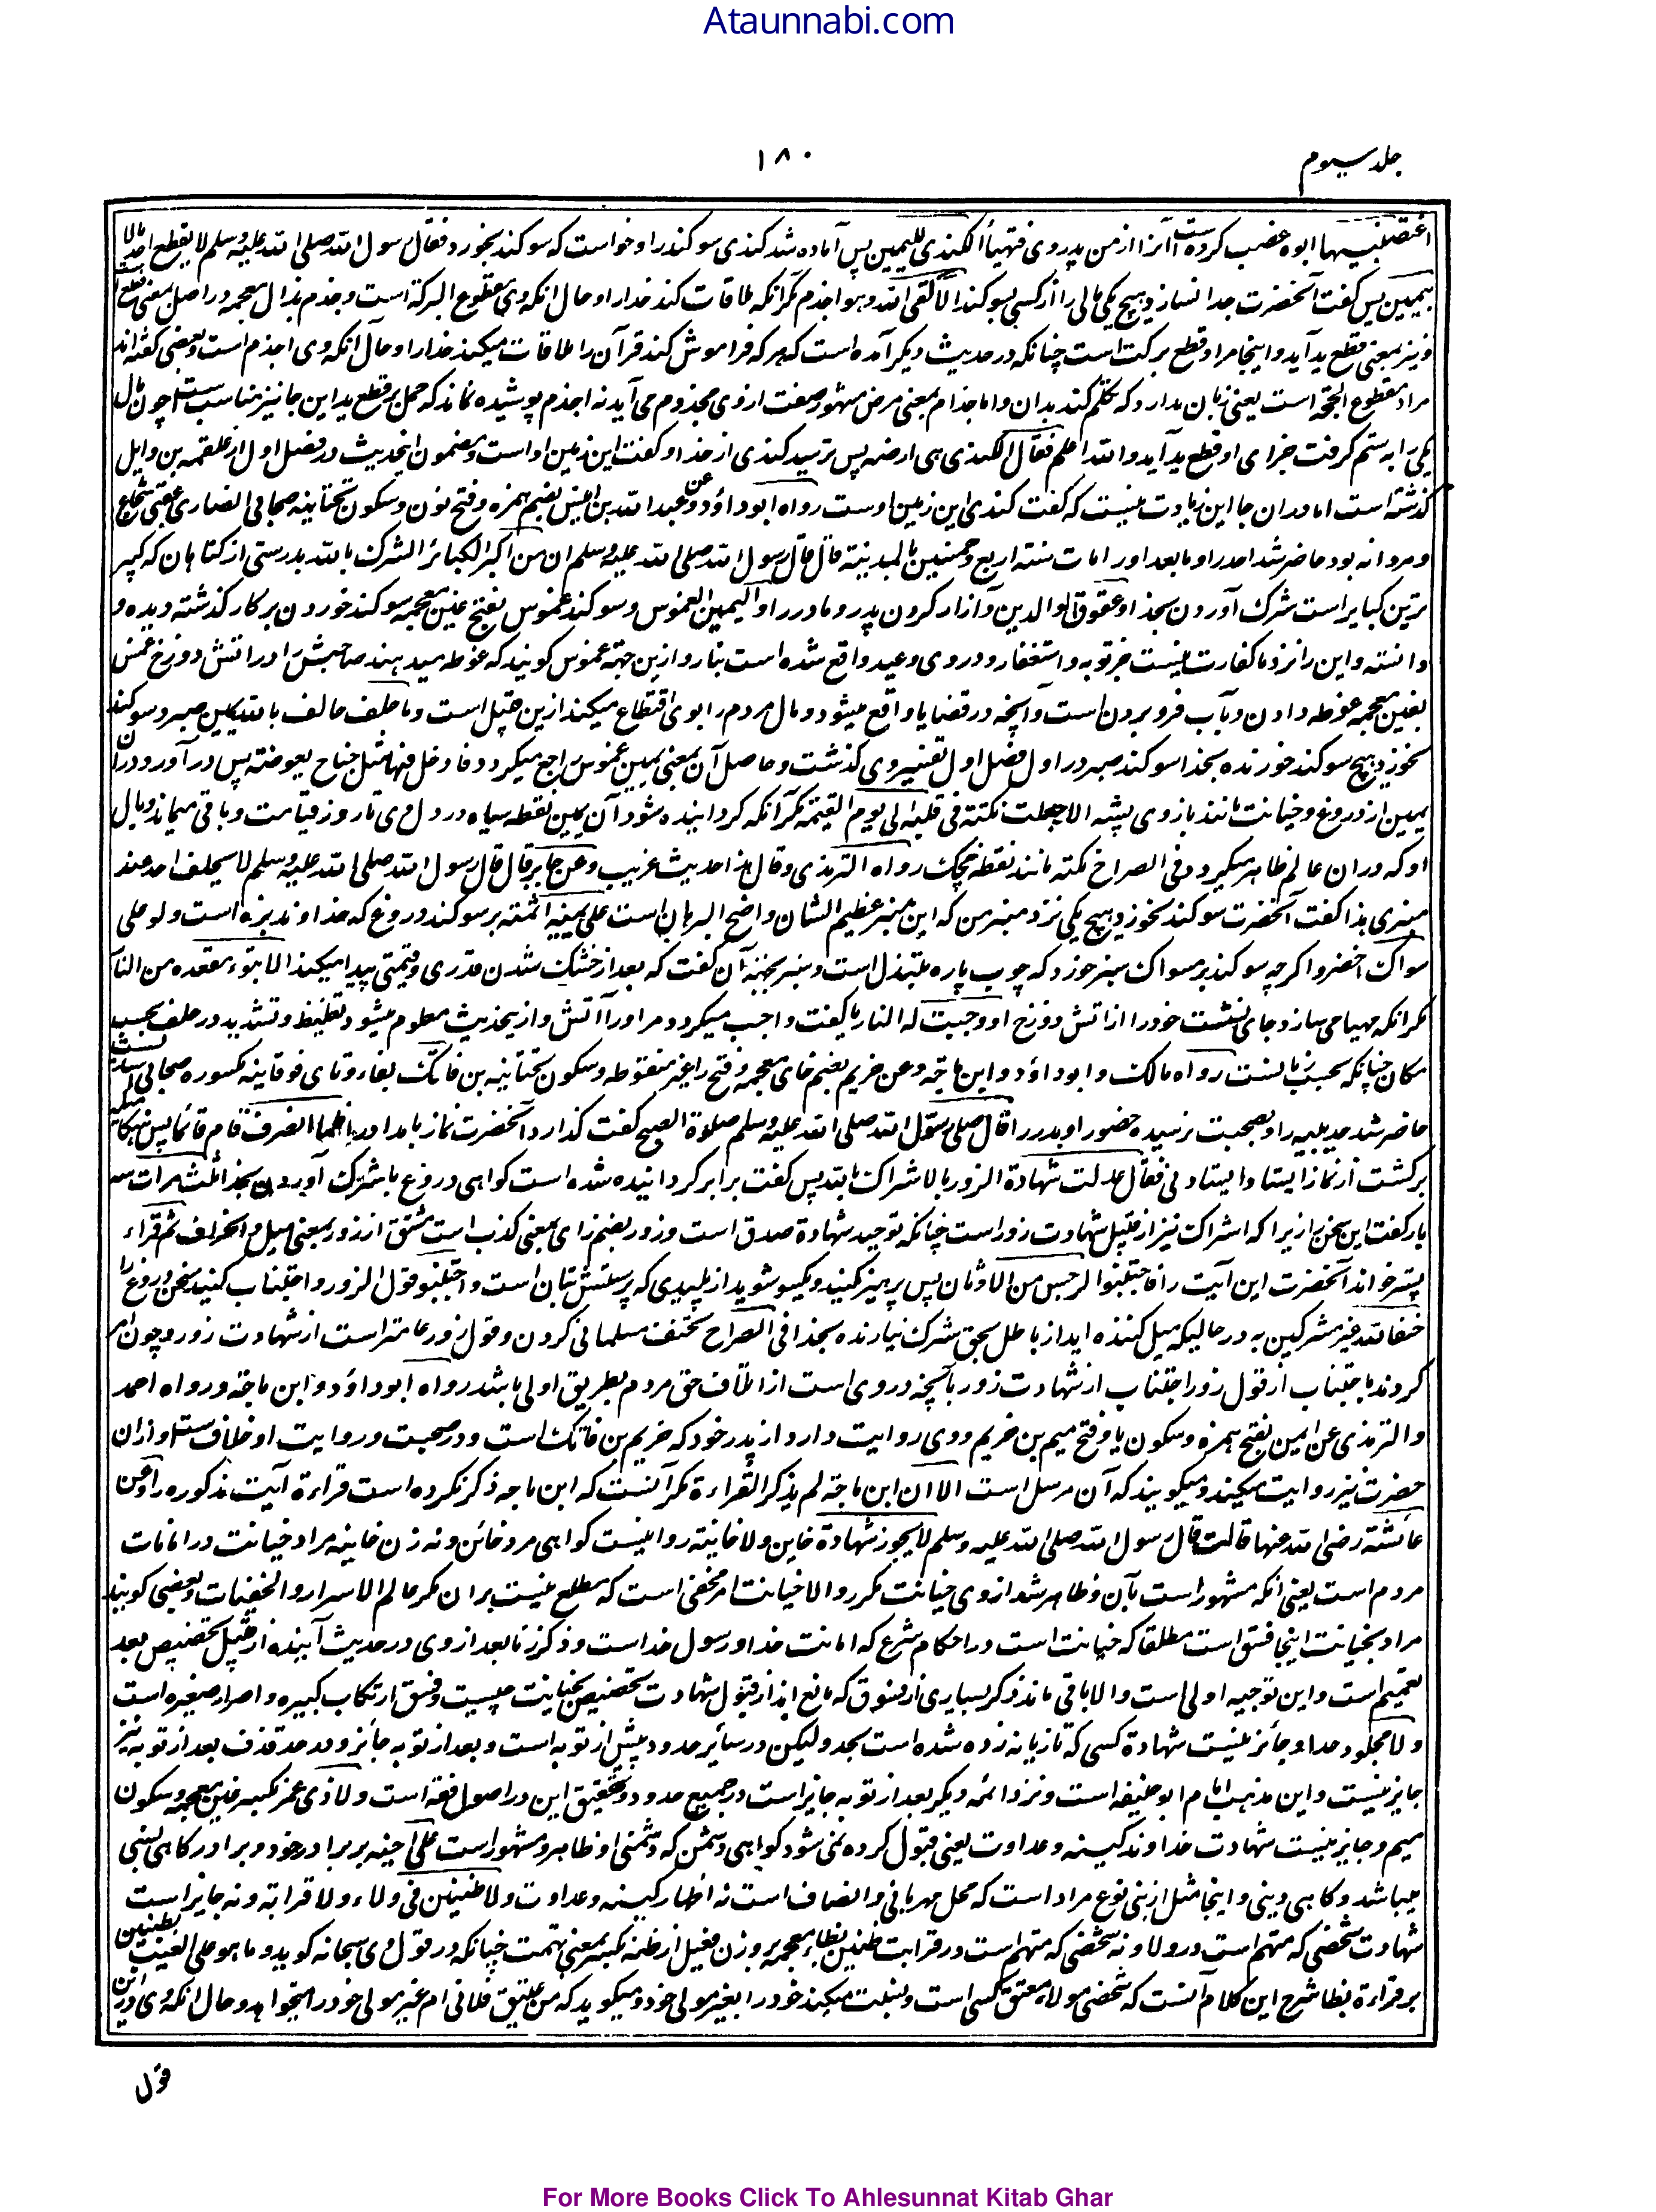 Ataunnabi.com
جلد سیوم
۱۸۰
اغتصبنیها ابوه غصب کرده است آنرا از من پدر وی فتهیأ الکندی للیمین پس آماده شد کندی سوکند را و خواست که سوکند بخورد فقال رسول الله صلی الله علیه وسلم لا یقطع احد مالا
بیمین پس کفت آنحضرت جدا نسازد هیچ یکی مالی را از کسی بسوکند الا لقی الله و هو اجذم مکر آنکه ملاقات کند خدا را و حال آنکه وی مقطوع البرکة است و جذم بذال معجمه در اصل بمعنی قطع است
و نیز بمعنی قطع ید آید و اینجا مراد قطع برکت است چنانکه در حدیث دیکر آمده است که هر که فراموش کند قرآن را ملاقات میکند خدا را و حال آنکه وی اجذم است و بعضی کفته اند
مراد مقطوع الحجة است یعنی زبان ندارد که تکلم کند بدان و اما جذام بمعنی مرض مشهور صفت از وی مجذوم می آید نه اجذم پوشیده نماند که حمل بر قطع ید این جا نیز مناسب است چون مال
یکی را به ستم کرفت جزای او قطع ید آید والله اعلم فقال الکندی هی ارضه پس ترسید کندی از خدا و کفت این زمین او است و مضمون این حدیث در فصل اول از علقمه بن وایل
کذشته است اما در ان جا این زیادت نیست که کفت کندی این زمین اوست رواه ابو داؤد و عن عبد الله بن انیس بضم همزه و فتح نون و سکون تحتانیه صحابی انصاری عقبی شجاع
و مردانه بود حاضر شد احد را و ما بعد او را مات سنة اربع و خمسین بالمدینة قال قال رسول الله صلی الله علیه وسلم ان من اکبر الکبائر الشرک بالله بدرستی از کناهان که کبیر
ترین کبایر است شرک آوردن بخدا و عقوق الوالدین و آزار کردن پدر و مادر را و الیمین الغموس و سوکند غموس بفتح غین معجمه سوکند خوردن بر کار کذشته دیده و
دانسته و این را نزد ما کفارت نیست جز توبه و استغفار و در وی وعید واقع شده است بنار و ازین جهة غموس کویند که غوطه میدهند صاحبش را در آتش دوزخ غمس
بغین معجمه غوطه دادن و بآب فرو بردن است و آنچه در قضایا واقع میشود و مال مردم را بوی اقتطاع میکند ازین قبیل است و ما حلف حالف بالله یمین صبر و سوکند
نخورد هیچ سوکند خورنده بخدا سوکند صبر در اول فصل اول تفسیر وی کذشت و حاصل آن بمعنی یمین غموس راجع میکردد فادخل فیها مثل جناح بعوضة پس در آورد در آن
یمین از دروغ و خیانت مانند بازوی پشه الا جعلت نکتة فی قلبه الی یوم القیمة مکر آنکه کردانیده شود آن یمین نقطه سیاه در دل وی تا روز قیامت و باقی میماند وبال
او که در ان عالم ظاهر میکردد و فی الصراح نکته مانند نقطه خجک رواه الترمذی و قال هذا حدیث غریب و عن جابر قال قال رسول الله صلی الله علیه وسلم لا یحلف احد عند
منبری هذا کفت آنحضرت سوکند نخورد هیچ یکی نزد منبر من که این منبر عظیم الشان واضح البرهان است علی یمین آثمة بر سوکند دروغ که خداوند بزه است و لو علی
سواک اخضر و اکرچه سوکند بر مسواک سبز خورد که چوب پاره مبتذل است و سبز بجهة آن کفت که بعد از خشک شدن قدری و قیمتی پیدا میکند الا تبوء مقعده من النار
مکر آنکه مهیا می سازد جای نشست خود را از آتش دوزخ او وجبت له النار یا کفت واجب میکردد مر او را آتش و ازین حدیث معلوم میشود تغلیظ و تشدید در حلف بحسب
مکان چنانکه بحسب زمانست رواه مالک و ابو داؤد و ابن ماجة و عن خریم بضم خای معجمه و فتح را غیر منقوطه و سکون تحتانیه بن فاتک بفاء و تای فوقانیه مکسوره صحابی است
حاضر شد حدیبیه را و بصحبت نرسیده حضور او بدر را قال صلی رسول الله صلی الله علیه وسلم صلوة الصبح کفت کذارد آنحضرت نماز بامداد را فلما انصرف قام قائما پس هنکامیکه
برکشت از نماز ایستاد ایستادنی فقال عدلت شهادة الزور بالاشراک بالله پس کفت برابر کردانیده شده است کواهی دروغ با شرک آوردن بخدا ثلث مرات سه
بار کفت این سخن را زیرا که اشراک نیز از قبیل شهادت زور است چنانکه توحید شهادة صدق است و زور بضم زای بمعنی کذب است مشتق از زور بمعنی میل و انحراف ثم قراء
پستر خواند آنحضرت این آیت را فاجتنبوا الرجس من الاوثان پس پرهیز کنید و یکسو شوید از پلیدی که پرستش بتان است و اجتنبوا قول الزور و اجتناب کنید سخن دروغ را
حنفاء لله غیر مشرکین به در حالیکه میل کننده اید از باطل بحق شرک نیارنده بخدا فی الصراح تحنف مسلمانی کردن و قول زور عامتر است از شهادت زور و چون امر
کردند با جتناب از قول زور اجتناب از شهادت زور بآنچه در وی است از اتلاف حق مردم بطریق اولی باشد رواه ابو داؤد و ابن ماجة و رواه احمد
و الترمذی عن ایمن بفتح همزه و سکون یا و فتح میم بن خریم و وی روایت دارد از پدر خود که خریم بن فاتک است و در صحبت و روایت او خلاف ست و ازان
حضرت نیز روایت میکند و میکویند که آن مرسل است الا ان ابن ماجة لم یذکر القراءة مکر آنست که ابن ماجه ذکر نکرده است قراءة آیت مذکوره را و عن
عائشة رضی الله عنها قالت قال رسول الله صلی الله علیه وسلم لا یجوز شهادة خاین و لا خاینة روا نیست کواهی مرد خائن و نه زن خاینه مراد خیانت در امانات
مردم است یعنی آنکه مشهور است بآن و ظاهر شد از وی خیانت مکرر والا خیانت امر مخفی است که مطلع نیست بر ان مکر عالم الاسرار و الخفیات و بعضی کویند
مراد بخیانت اینجا فسق است مطلقا که خیانت است در احکام شرع که امانت خدا و رسول خداست و ذکر زنا بعد از وی در حدیث آینده از قبیل تخصیص بعد
تعمیم است و این توجیه اولی است و الا باقی ماند ذکر بسیاری از فسوق که مانع اند از قبول شهادت تخصیص بخیانت چیست و فسق ارتکاب کبیره و اصرار صغیره است
و لا مجلود حدا و جائز نیست شهادة کسی که تازیانه زده شده است بحد ولیکن در سائر حدود پیش از توبه است و بعد از توبه جائز و در حد قذف بعد از توبه نیز
جایز نیست و این مذهب امام ابو حنیفه است و نزد ائمه دیکر بعد از توبه جایز است در جمیع حدود و تحقیق این در اصول فقه است و لا ذی غمر بکسر غین معجمه و سکون
میم و جایز نیست شهادت خداوند کینه و عداوت یعنی قبول کرده نمی شود کواهی دشمن که دشمنی او ظاهر و مشهور است علی اخیه بر برادر خود و برادر کاهی نسبی
میباشد و کاهی دینی و اینجا مثل از بنی نوع مراد است که محل مهربانی و انصاف است نه اظهار کینه و عداوت و لا ظنین فی ولاء و لا قرابة و نه جایز است
شهادت شخصی که متهم است در ولا و نه شخصی که متهم است در قرابت ظنین بظاء معجمه بر وزن فعیل از ظنه بکسر بمعنی تهمت چنانکه در قول وی سبحانه کوید و ما هو علی الغیب بظنین
بر قراءة بظا شرح این کلام آنست که شخصی مولای معتق کسی است و نسبت میکند خود را بغیر مولی خود و میکوید که من عتیق فلانی ام غیر مولی خود را میخواهد و حال آنکه وی درین
قول
For More Books Click To Ahlesunnat Kitab Ghar